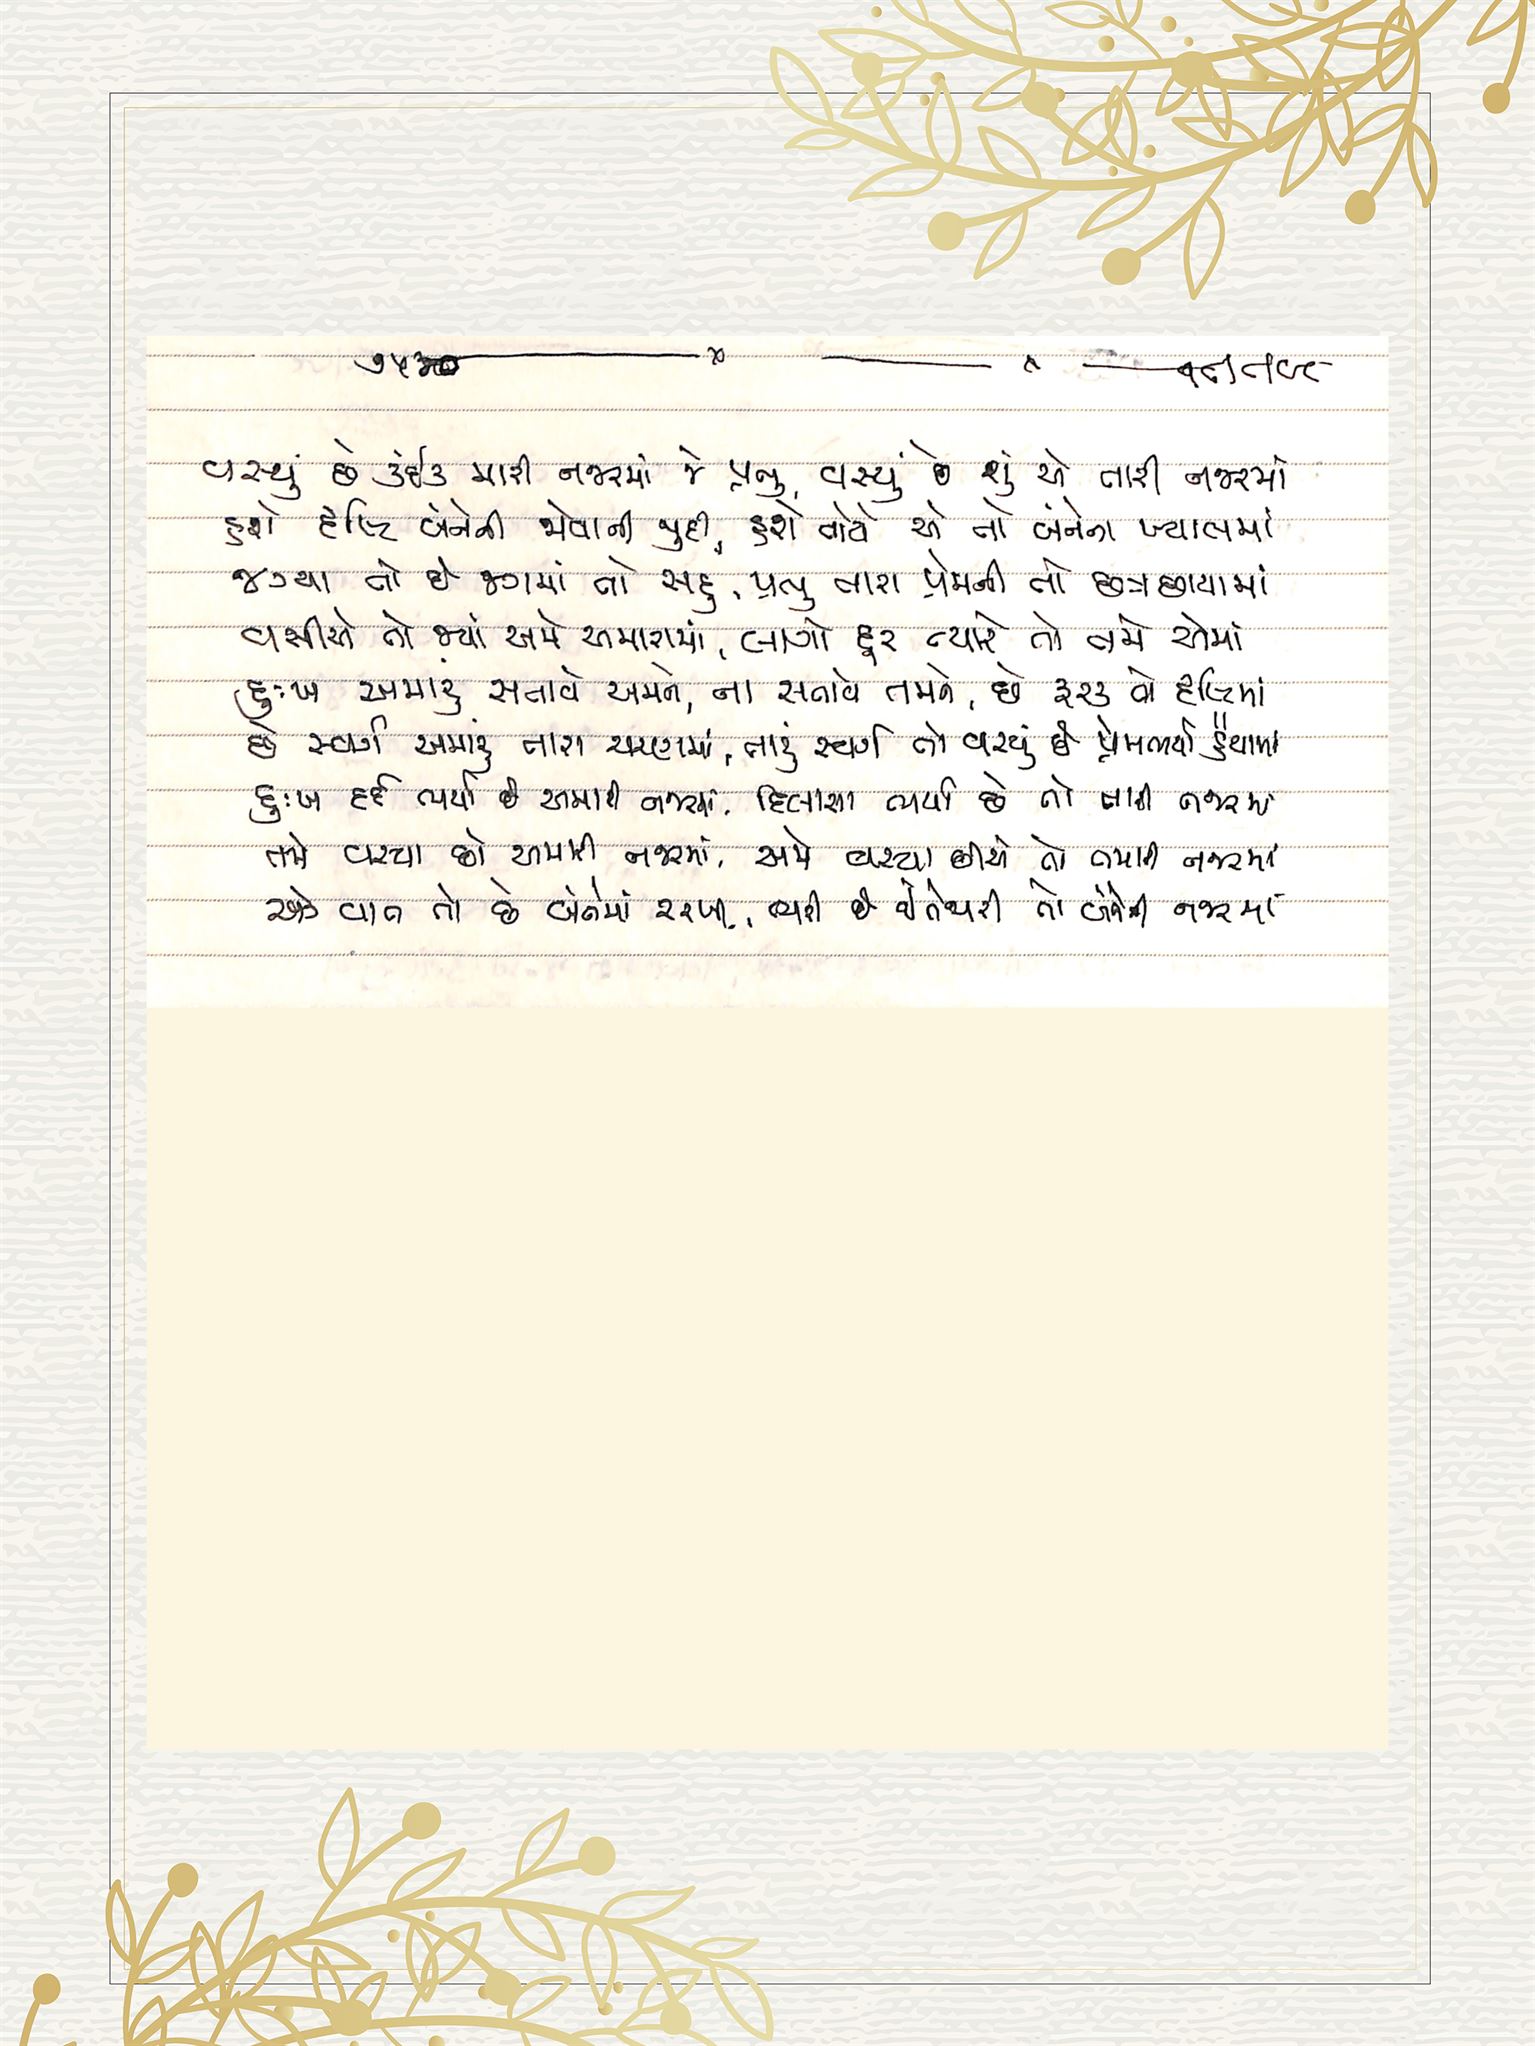 વસ્યું છે કંઈક મારી નજરમાં જે પ્રભુ, વસ્યું છે શું એ તારી નજરમાં
હશે દૃષ્ટિ બંનેની જોવાની જુદી, હશે તોયે એ તો બંનેના ખ્યાલમાં
જીવ્યા તો છે જગમાં તો સહુ, પ્રભુ તારા પ્રેમની તો છત્રછાયામાં
વસીએ તો જ્યાં અમે અમારામાં, લાગો દૂર ત્યારે તો તમે એમાં
દુઃખ અમારું સતાવે અમને, ના સતાવે તમને, છે ફરક તો દૃષ્ટિમાં
છે સ્વર્ગ અમારું તારા ચરણમાં, તારું સ્વર્ગ તો વસ્યું છે પ્રેમભર્યા હૈયામાં
દુઃખ દર્દ ભર્યા છે અમારી નજરમાં, દિલાસા ભર્યા છે તો તારી નજરમાં
તમે વસ્યા છો અમારી નજરમાં, અમે વસ્યા છીએ તો તમારી નજરમાં
એક વાત તો છે બંનેમાં સરખી, ભરી છે બંનેની તો નજરમાં